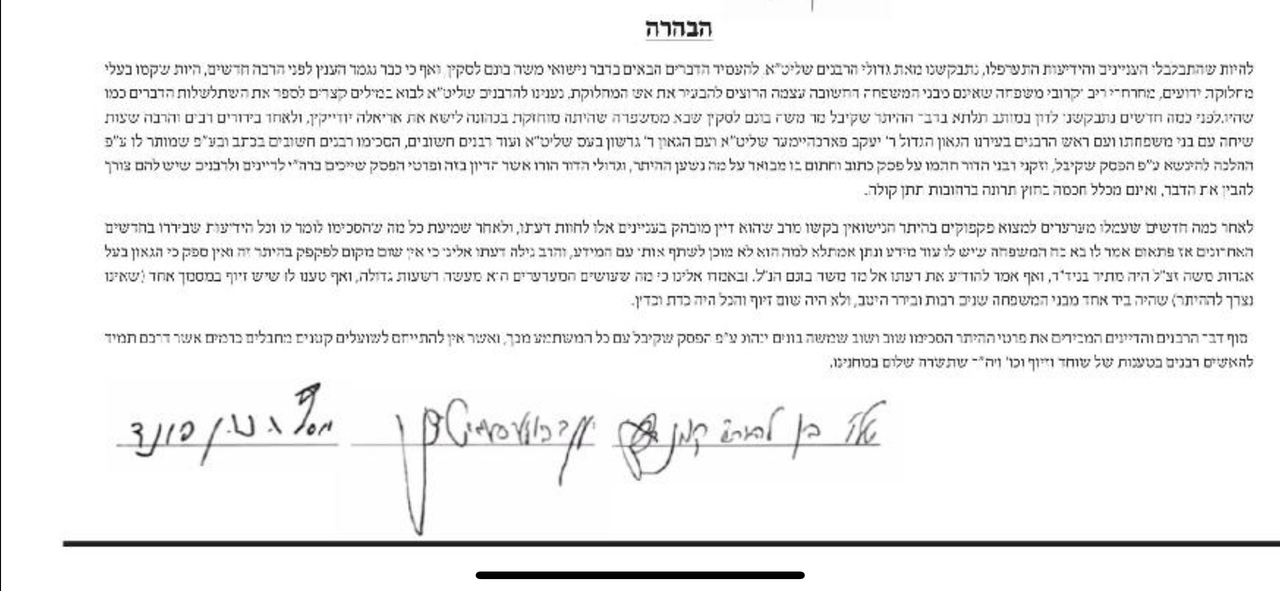 הבהרה
להיות שהתבלבלו העניינים והידיעות התערפלו, נתבקשנו מאת גדולי הרבנים שליט"א להעמיד הדברים הבאים בדבר נישואי משה בונם לסקין, ואף כי כבר נגמר הענין לפני הרבה חדשים, היות שקמו בעלי
מחלוקת ידועים, מחרחרי ריב וקרובי משפחה שאינם מבני המשפחה החשובה עצמה הרוצים להבעיר את אש המחלוקת, נענינו להרבנים שליט"א לבוא במילים קצרים לספר את השתלשלות הדברים כמו
שהיו. לפני כמה חדשים נתבקשנו לדון במותב תלתא בדבר ההיתר שקיבל מר משה בונם לסקין שבא ממשפחה שהיתה מוחזקת בכהונה לישא את אריאלה יודייקין, ולאחר בירורים רבים והרבה שעות
שיחה עם בני משפחתו ועם ראש הרבנים בעירנו הגאון הגדול ר' יעקב פארכהיימער שליט"א ועם הגאון ר' גרשון בעס שליט"א ועוד רבנים חשובים, הסכימו רבנים חשובים בכתב ובע"פ שמותר לו ע"פ
ההלכה להינשא ע"פ הפסק שקיבל, וזקני רבני הדור חתמו על פסק כתוב וחתום בו מבואר על מה נשען ההיתר, וגדולי הדור הורו אשר הדיון בזה ופרטי הפסק שייכים ברה"י לדיינים ולרבנים שיש להם צורך
להבין את הדבר, ואינם מכלל חכמה בחוץ תרונה ברחובות תתן קולה.
לאחר כמה חדשים שעמלו מערערים למצוא פקפוקים בהיתר הנישואין בקשו מרב שהוא דיין מובהק בעניינים אלו לחוות דעתו, ולאחר שמיעת כל מה שהסכימו לומר לו וכל הידיעות שבידרו בחדשים
האחרונים אז פתאום אמר לו בא כח המשפחה שיש לו עוד מידע ונתן אמתלא למה הוא לא מוכן לשתף אותו עם המידע, והרב גילה דעתו אלינו כי אין שום מקום לפקפק בהיתר זה ואין ספק כי הגאון בעל
אגרות משה זצ"ל היה מתיר בניד"ד, ואף אמר להודיע את דעתו אל מר משה בונם הנ"ל. ובאמרו אלינו כי מה שעושים המערערים הוא מעשה רשעות גדולה, ואף טענו לו שיש זיוף במסמך אחד (שאינו
נצרך לההיתר) שהיה ביד אחד מבני המשפחה שנים רבות ובירר היטב, ולא היה שום זיוף והכל היה כדת וכדין.
סוף דבר הרבנים והדיינים המכירים את פרטי ההיתר הסכימו שוב ושוב שמשה בונים ינהוג ע"פ הפסק שקיבל עם כל המשתמע מכך, ואשר אין להתייחס לשועלים קטנים מחבלים כרמים אשר דרכם תמיד
להאשים רבנים בטענות של שוחד וזיוף וכו' ויה"ר שתשרה שלום במחנינו.